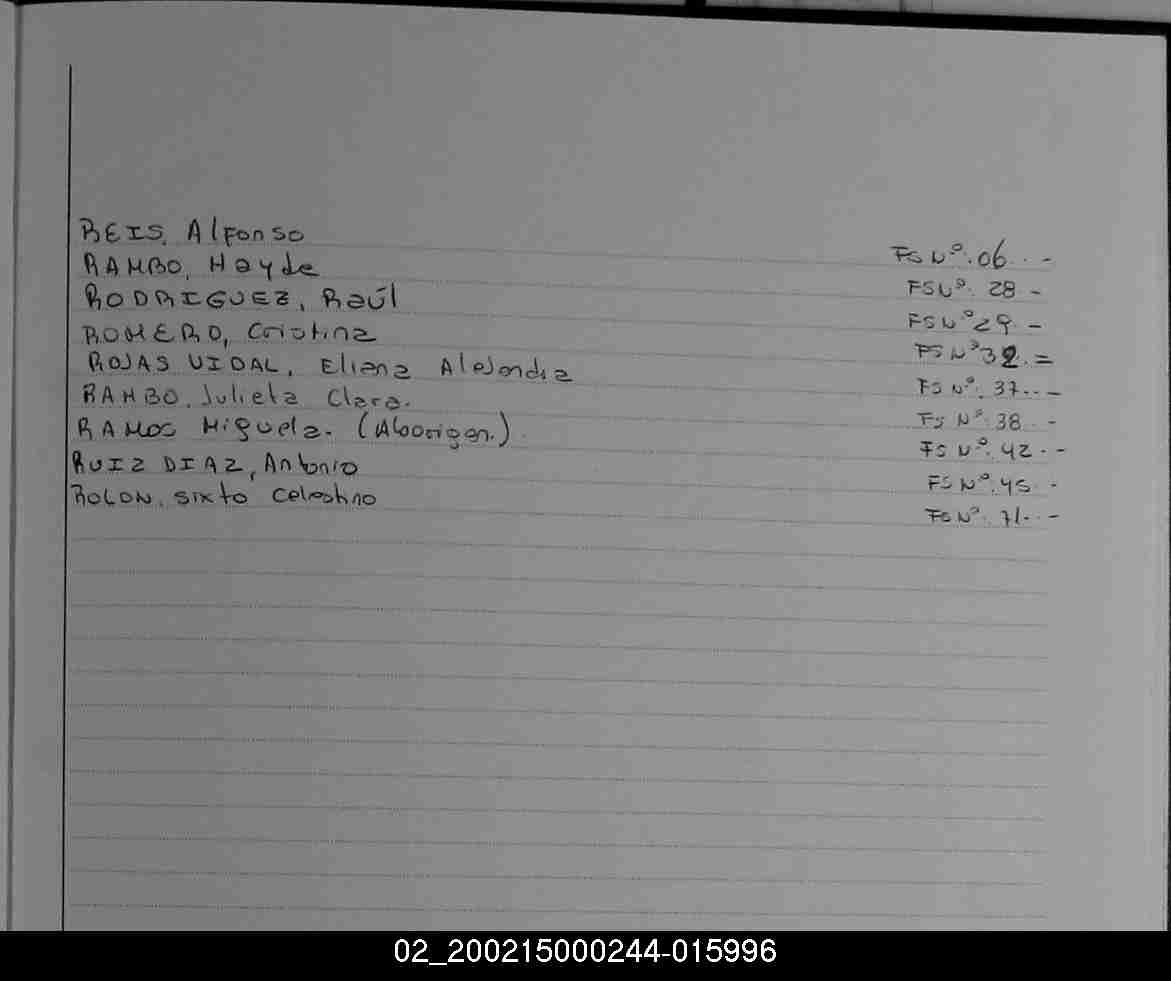 REIS, Alfonso FS Nº. 06.. -
RAMBO, Hayde FSNº. 28 -
RODRIGUEZ, Raúl FSNº 29. -
ROMERO, Cristina FS Nº 32. =
ROJAS VIDAL, Eliana Alejandra FS Nº. 37.. -
RAMBO, Julieta Clara. FS Nº. 38. -
RAMOS Miguela. (Aborigen.) FS Nº. 42. --
RUIZ DIAZ, Antonio FS Nº. 45 -
ROLON, Sixto Celestino FS Nº. 71.. -
02_200215000244-015996